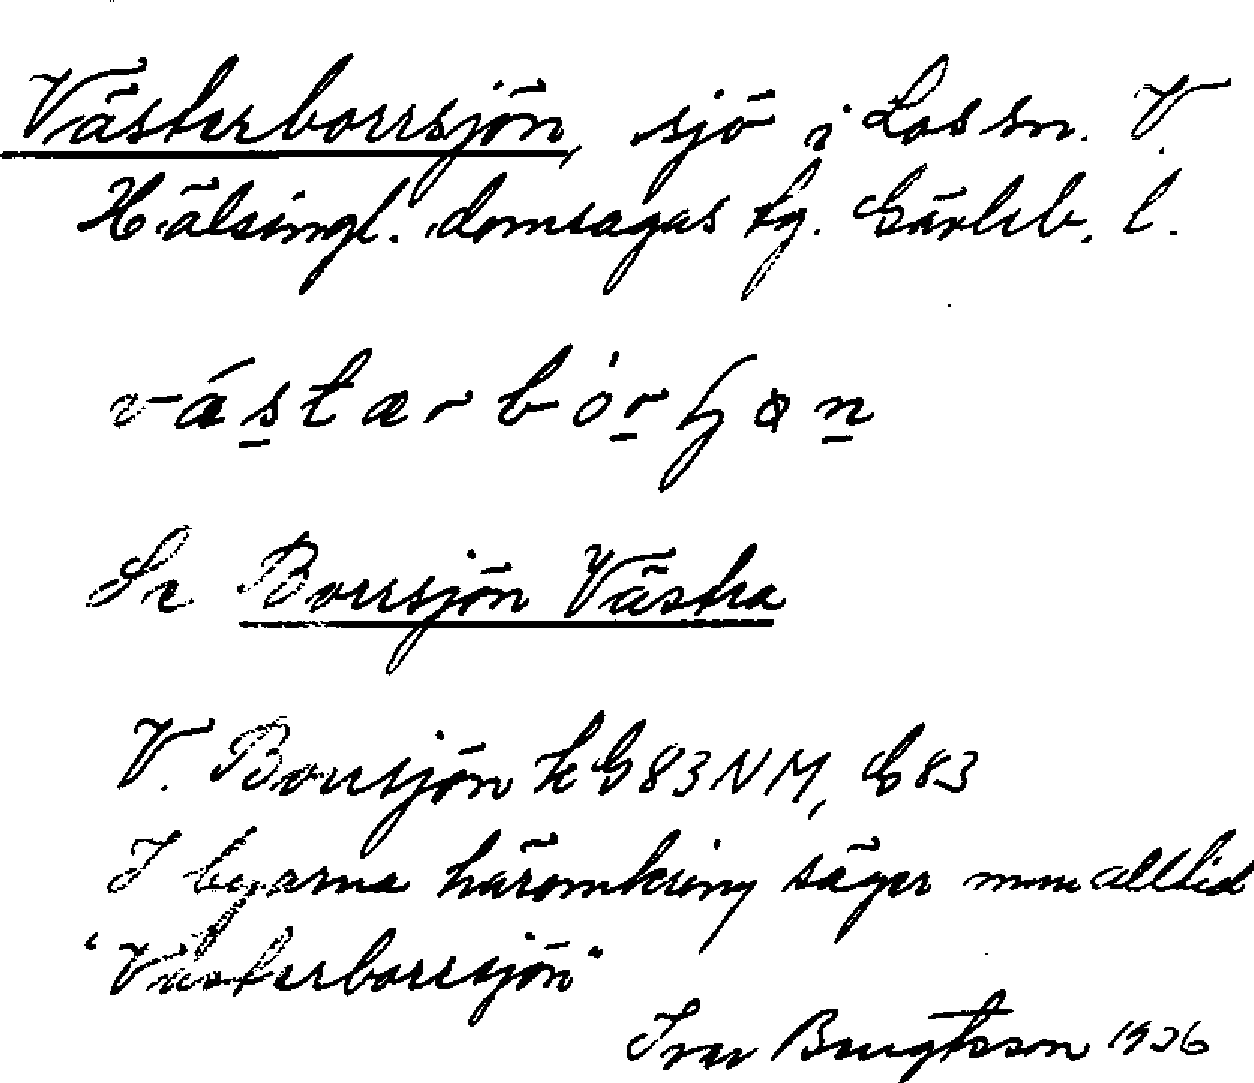 Västerborrsjön, sjö i Los sn. V.
Hälsingl. domsagas tg. Gävleb. l.
västærbórʃøn
Se Borrsjön Västra
V. Borrsjön k G 83 NM, G 83
I byarna häromkring säger man alltid
"Västerborrsjön"
Ivar Bengtsson 1936